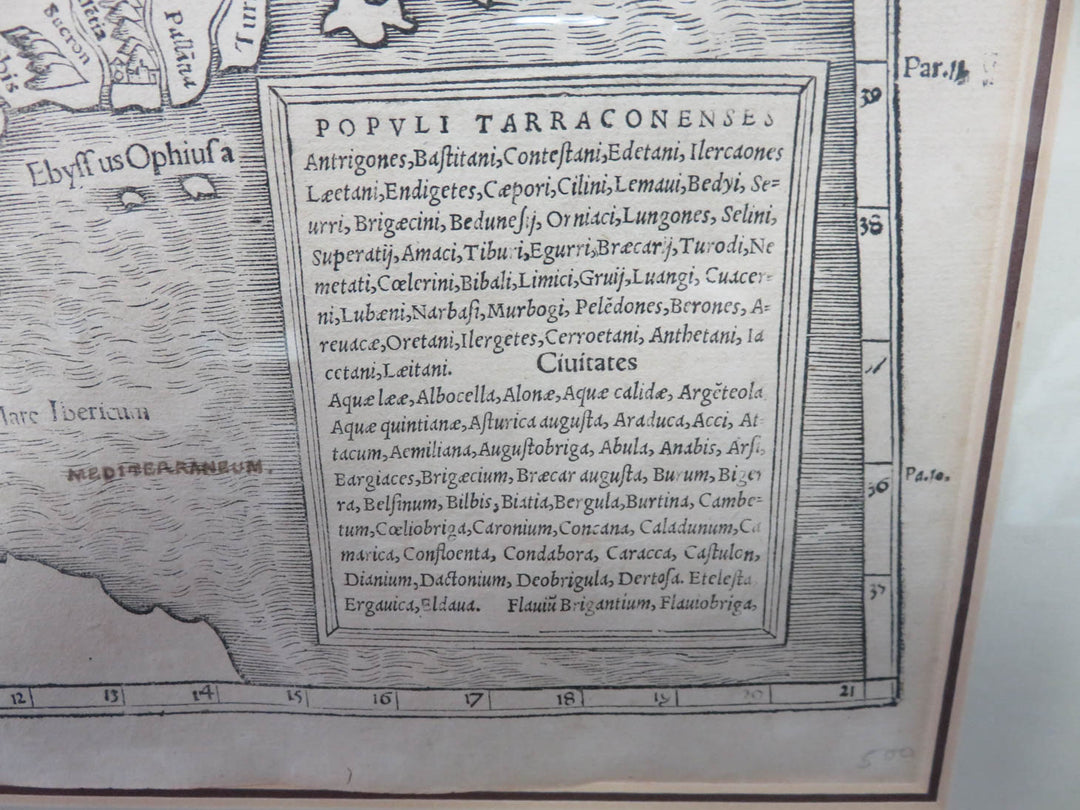 Sucron
Pallāna
Tur
Par.
39
POPVLI TARRACONENSES
EbyſſusOphiuſa
Antrigones,Baſtitani,Conteſtani,Edetani, Ilercaones
Læetani,Endigetes,Cæpori,Cilini,Lemaui,Bedyi, Se=
urri, Brigæcini, Beduneſij, Orniaci,Lungones, Selini,
38
Superatij,Amaci,Tiburi,Egurri,Bræcarij,Turodi,Ne
metati,Cœlerini,Bibali,Limici,Gruij,Luangi, Cuacer=
ni,Lubæni,Narbaſi,Murbogi, Pelēdones,Berones, A=
reuacæ,Oretani,Ilergetes,Cerroetani, Anthetani, Ia
cctani,Læitani.
Ciuitates
Aquæ lææ,Albocella,Alonæ,Aquæ calidæ, Argēteola
Mare Ibericum
Aquæ quintianæ,Aſturica auguſta, Araduca,Acci, At
tacum,Aemiliana,Auguſtobriga, Abula, Anabis, Arſi,
MEDITERRANEUM.
Bargiaces,Brigæcium, Bræcar auguſta, Burum, Biger
36
Pa.10.
ra,Belſinum, Bilbis,Biatia,Bergula,Burtina, Cambe=
tum,Cœliobriga,Caronium,Concana, Caladunum,Ca
marica, Confloenta, Condabora, Caracca, Caſtulon,
Dianium,Dactonium, Deobrigula, Dertoſa. Eteleſta
37
Ergauica,Eldaua. Flauiū Brigantium, Flauiobriga,
12 13 14 15 16 17 18 19 20 21
500